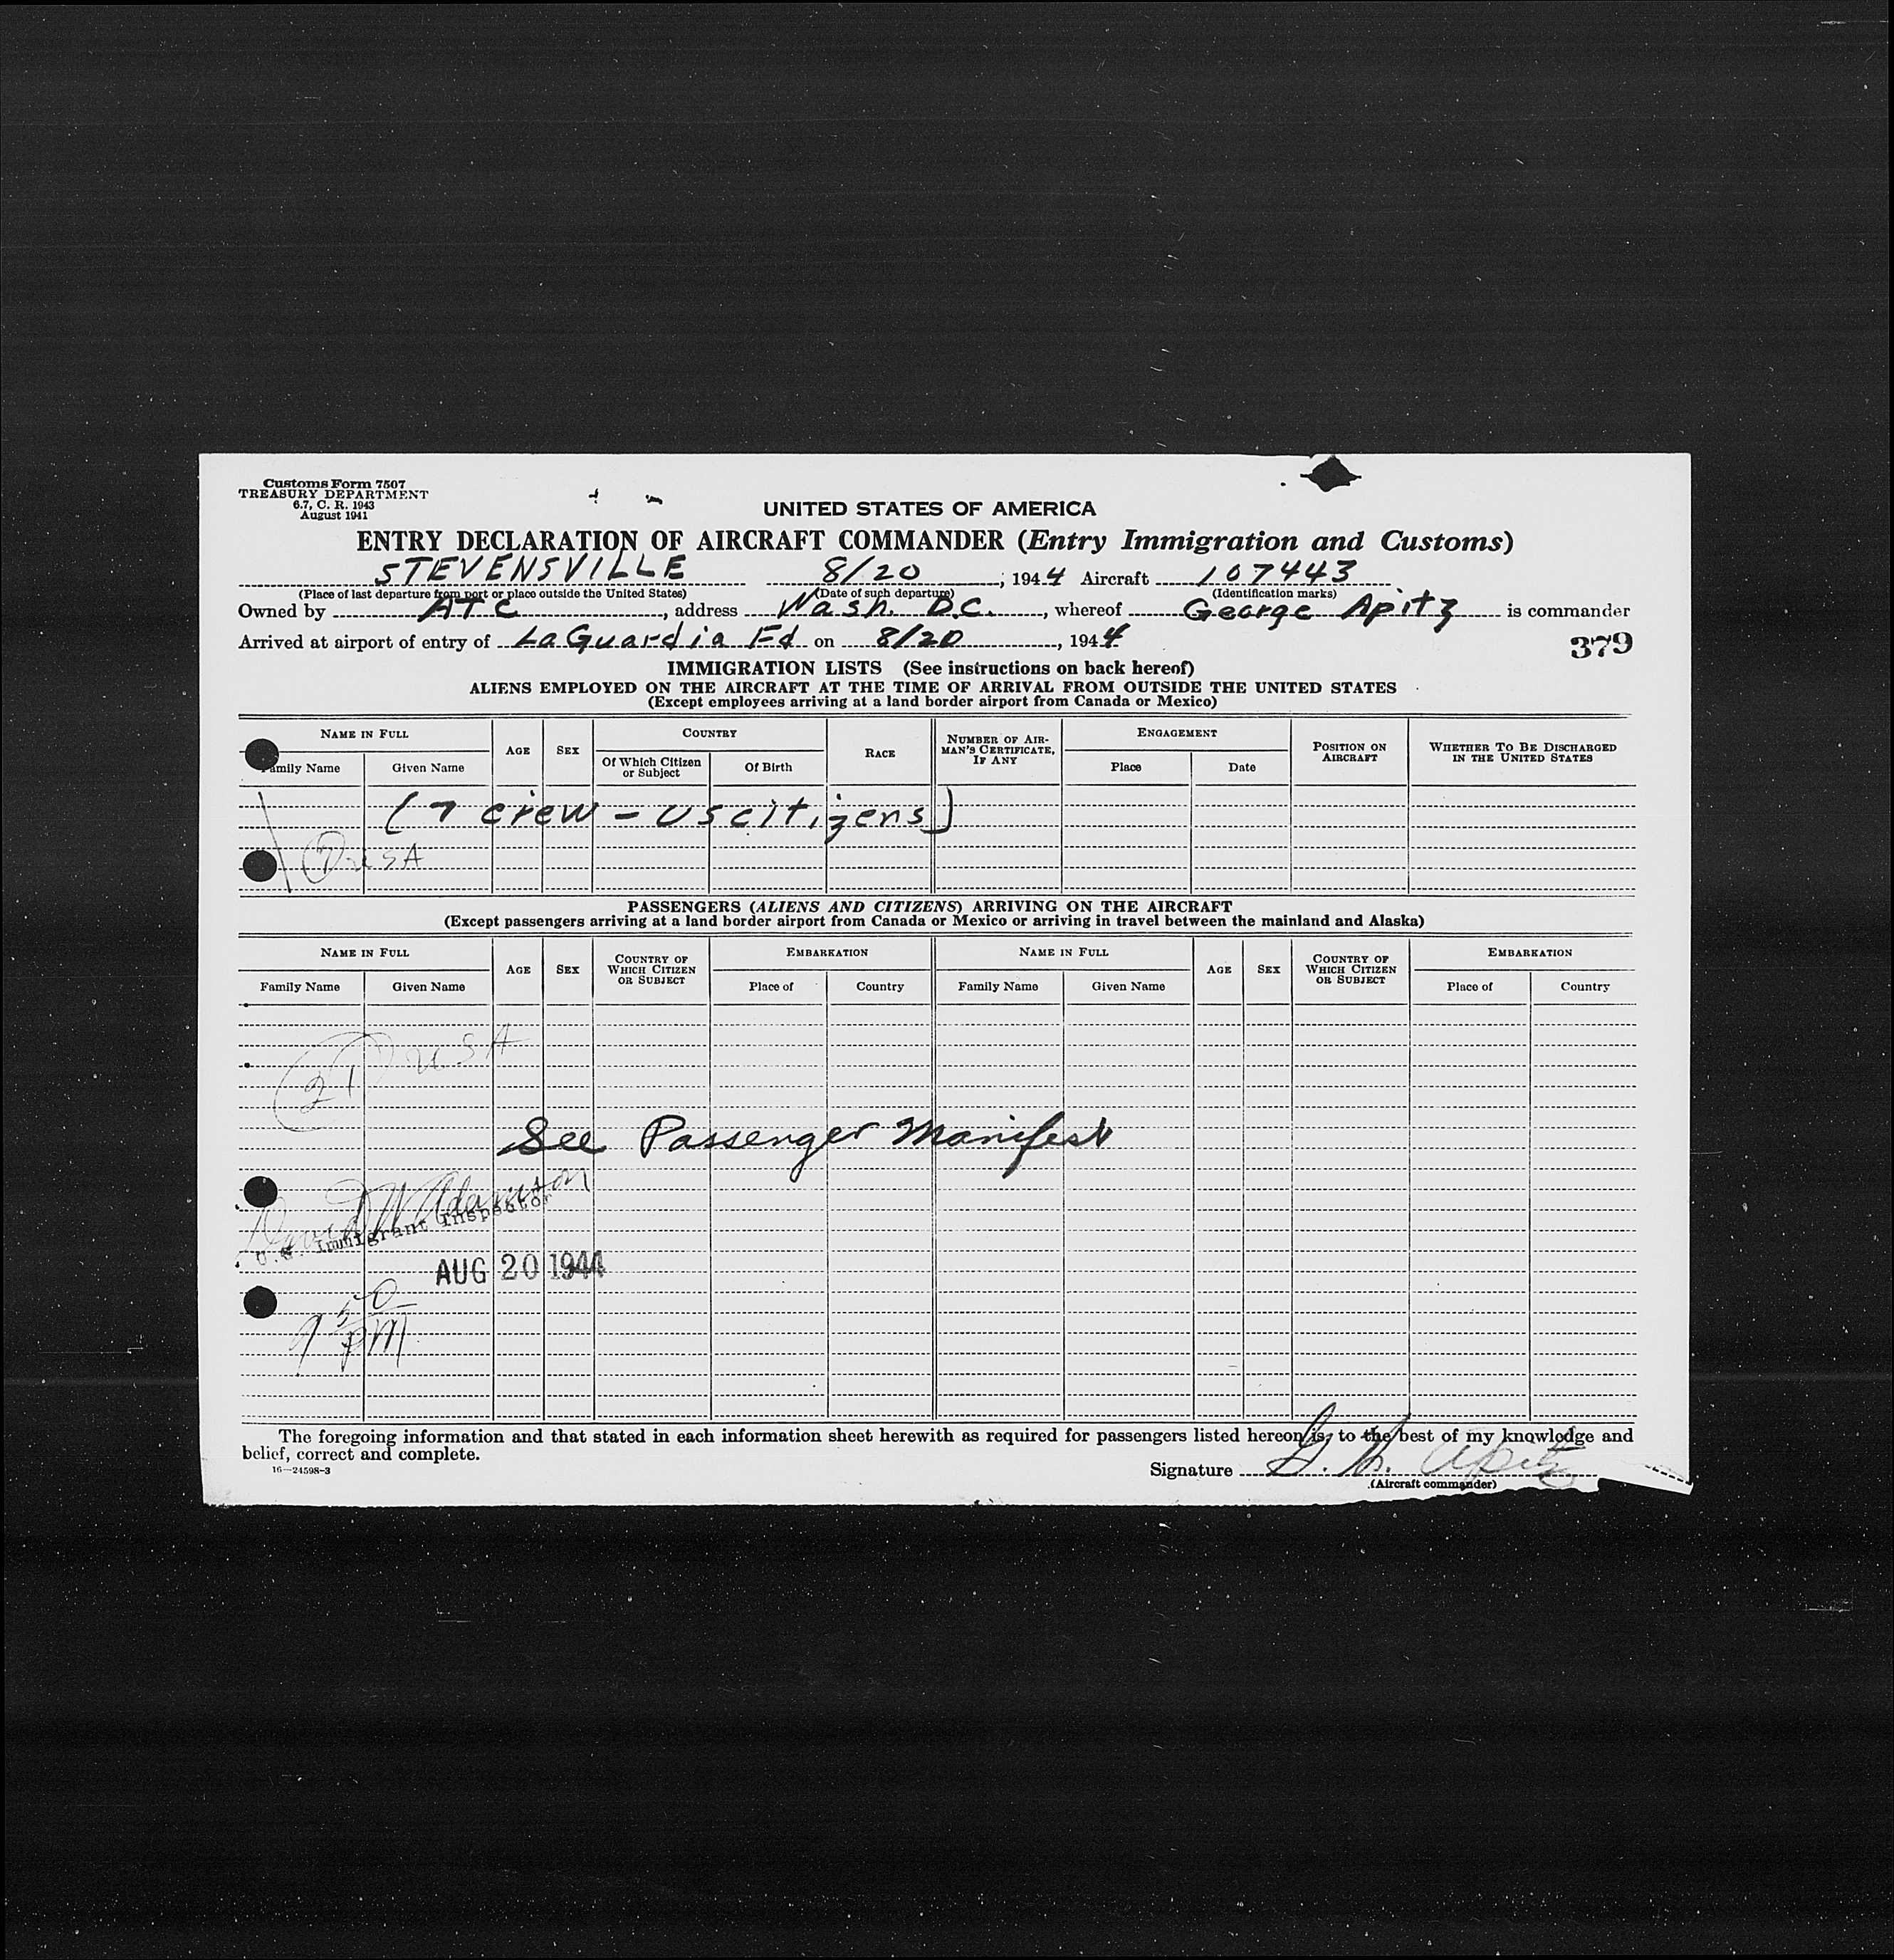 Customs Form 7507
TREASURY DEPARTMENT
6.7, C. R. 1943
August 1941
UNITED STATES OF AMERICA
ENTRY DECLARATION OF AIRCRAFT COMMANDER (Entry Immigration and Customs)
STEVENSVILLE 8/20, 1944 Aircraft 107443
(Place of last departure from port or place outside the United States) (Date of such departure) (Identification marks)
Owned by ATC, address Wash. D.C., whereof George Apitz is commander
Arrived at airport of entry of LaGuardia Fd on 8/20, 1944
379
IMMIGRATION LISTS (See instructions on back hereof)
ALIENS EMPLOYED ON THE AIRCRAFT AT THE TIME OF ARRIVAL FROM OUTSIDE THE UNITED STATES
(Except employees arriving at a land border airport from Canada or Mexico)
NAME IN FULL AGE SEX COUNTRY RACE NUMBER OF AIRMAN'S CERTIFICATE, IF ANY ENGAGEMENT POSITION ON AIRCRAFT WHETHER TO BE DISCHARGED IN THE UNITED STATES
Family Name Given Name Of Which Citizen or Subject Of Birth Place Date
(7 crew - US citizens)
7 USA
PASSENGERS (ALIENS AND CITIZENS) ARRIVING ON THE AIRCRAFT
(Except passengers arriving at a land border airport from Canada or Mexico or arriving in travel between the mainland and Alaska)
NAME IN FULL AGE SEX COUNTRY OF WHICH CITIZEN OR SUBJECT EMBARKATION NAME IN FULL AGE SEX COUNTRY OF WHICH CITIZEN OR SUBJECT EMBARKATION
Family Name Given Name Place of Country Family Name Given Name Place of Country
21 USA
See Passenger Manifest
David W Adamson
U.S. Immigrant Inspector
AUG 20 1944
9 50 PM
The foregoing information and that stated in each information sheet herewith as required for passengers listed hereon is, to the best of my knowledge and
belief, correct and complete.
16—24598-3
Signature G. H. Apitz
(Aircraft commander)